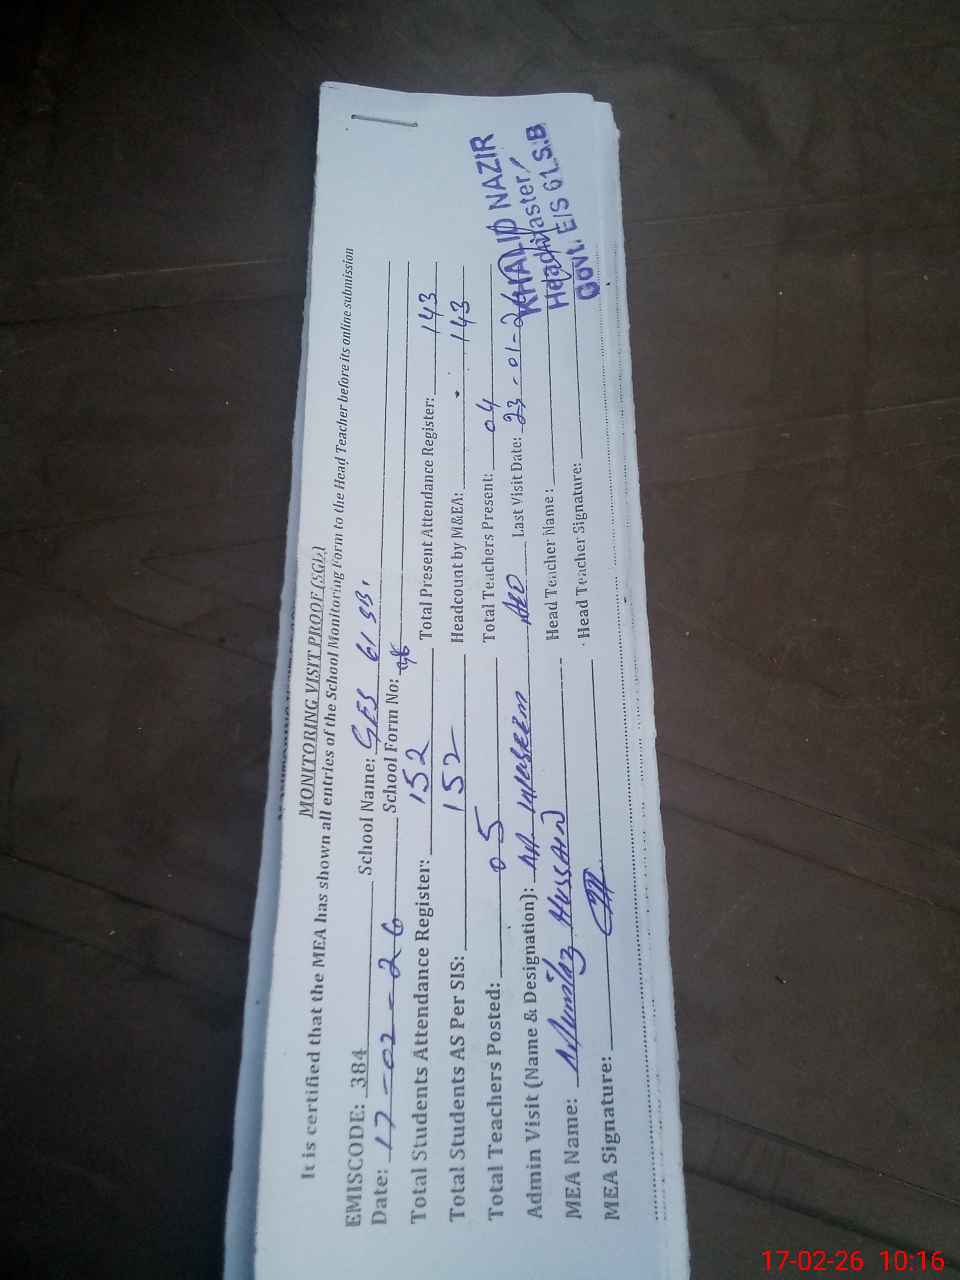 MONITORING VISIT PROOF (SGD)
It is certified that the MEA has shown all entries of the School Monitoring Form to the Head Teacher before its online submission
EMISCODE: 384 School Name: GES 61 SB.
Date: 17-02-26 School Form No:
Total Students Attendance Register: 152 Total Present Attendance Register: 143
Total Students AS Per SIS: 152 Headcount by M&EA: 143
Total Teachers Posted: 05 Total Teachers Present: 04
Admin Visit (Name & Designation): M Waseem AEO Last Visit Date: 23-01-26
MEA Name: Mumtaz Hussain Head Teacher Name:
MEA Signature: Head Teacher Signature:
KHALID NAZIR
Headmaster
Govt. E/S 61 S.B
17-02-26 10:16